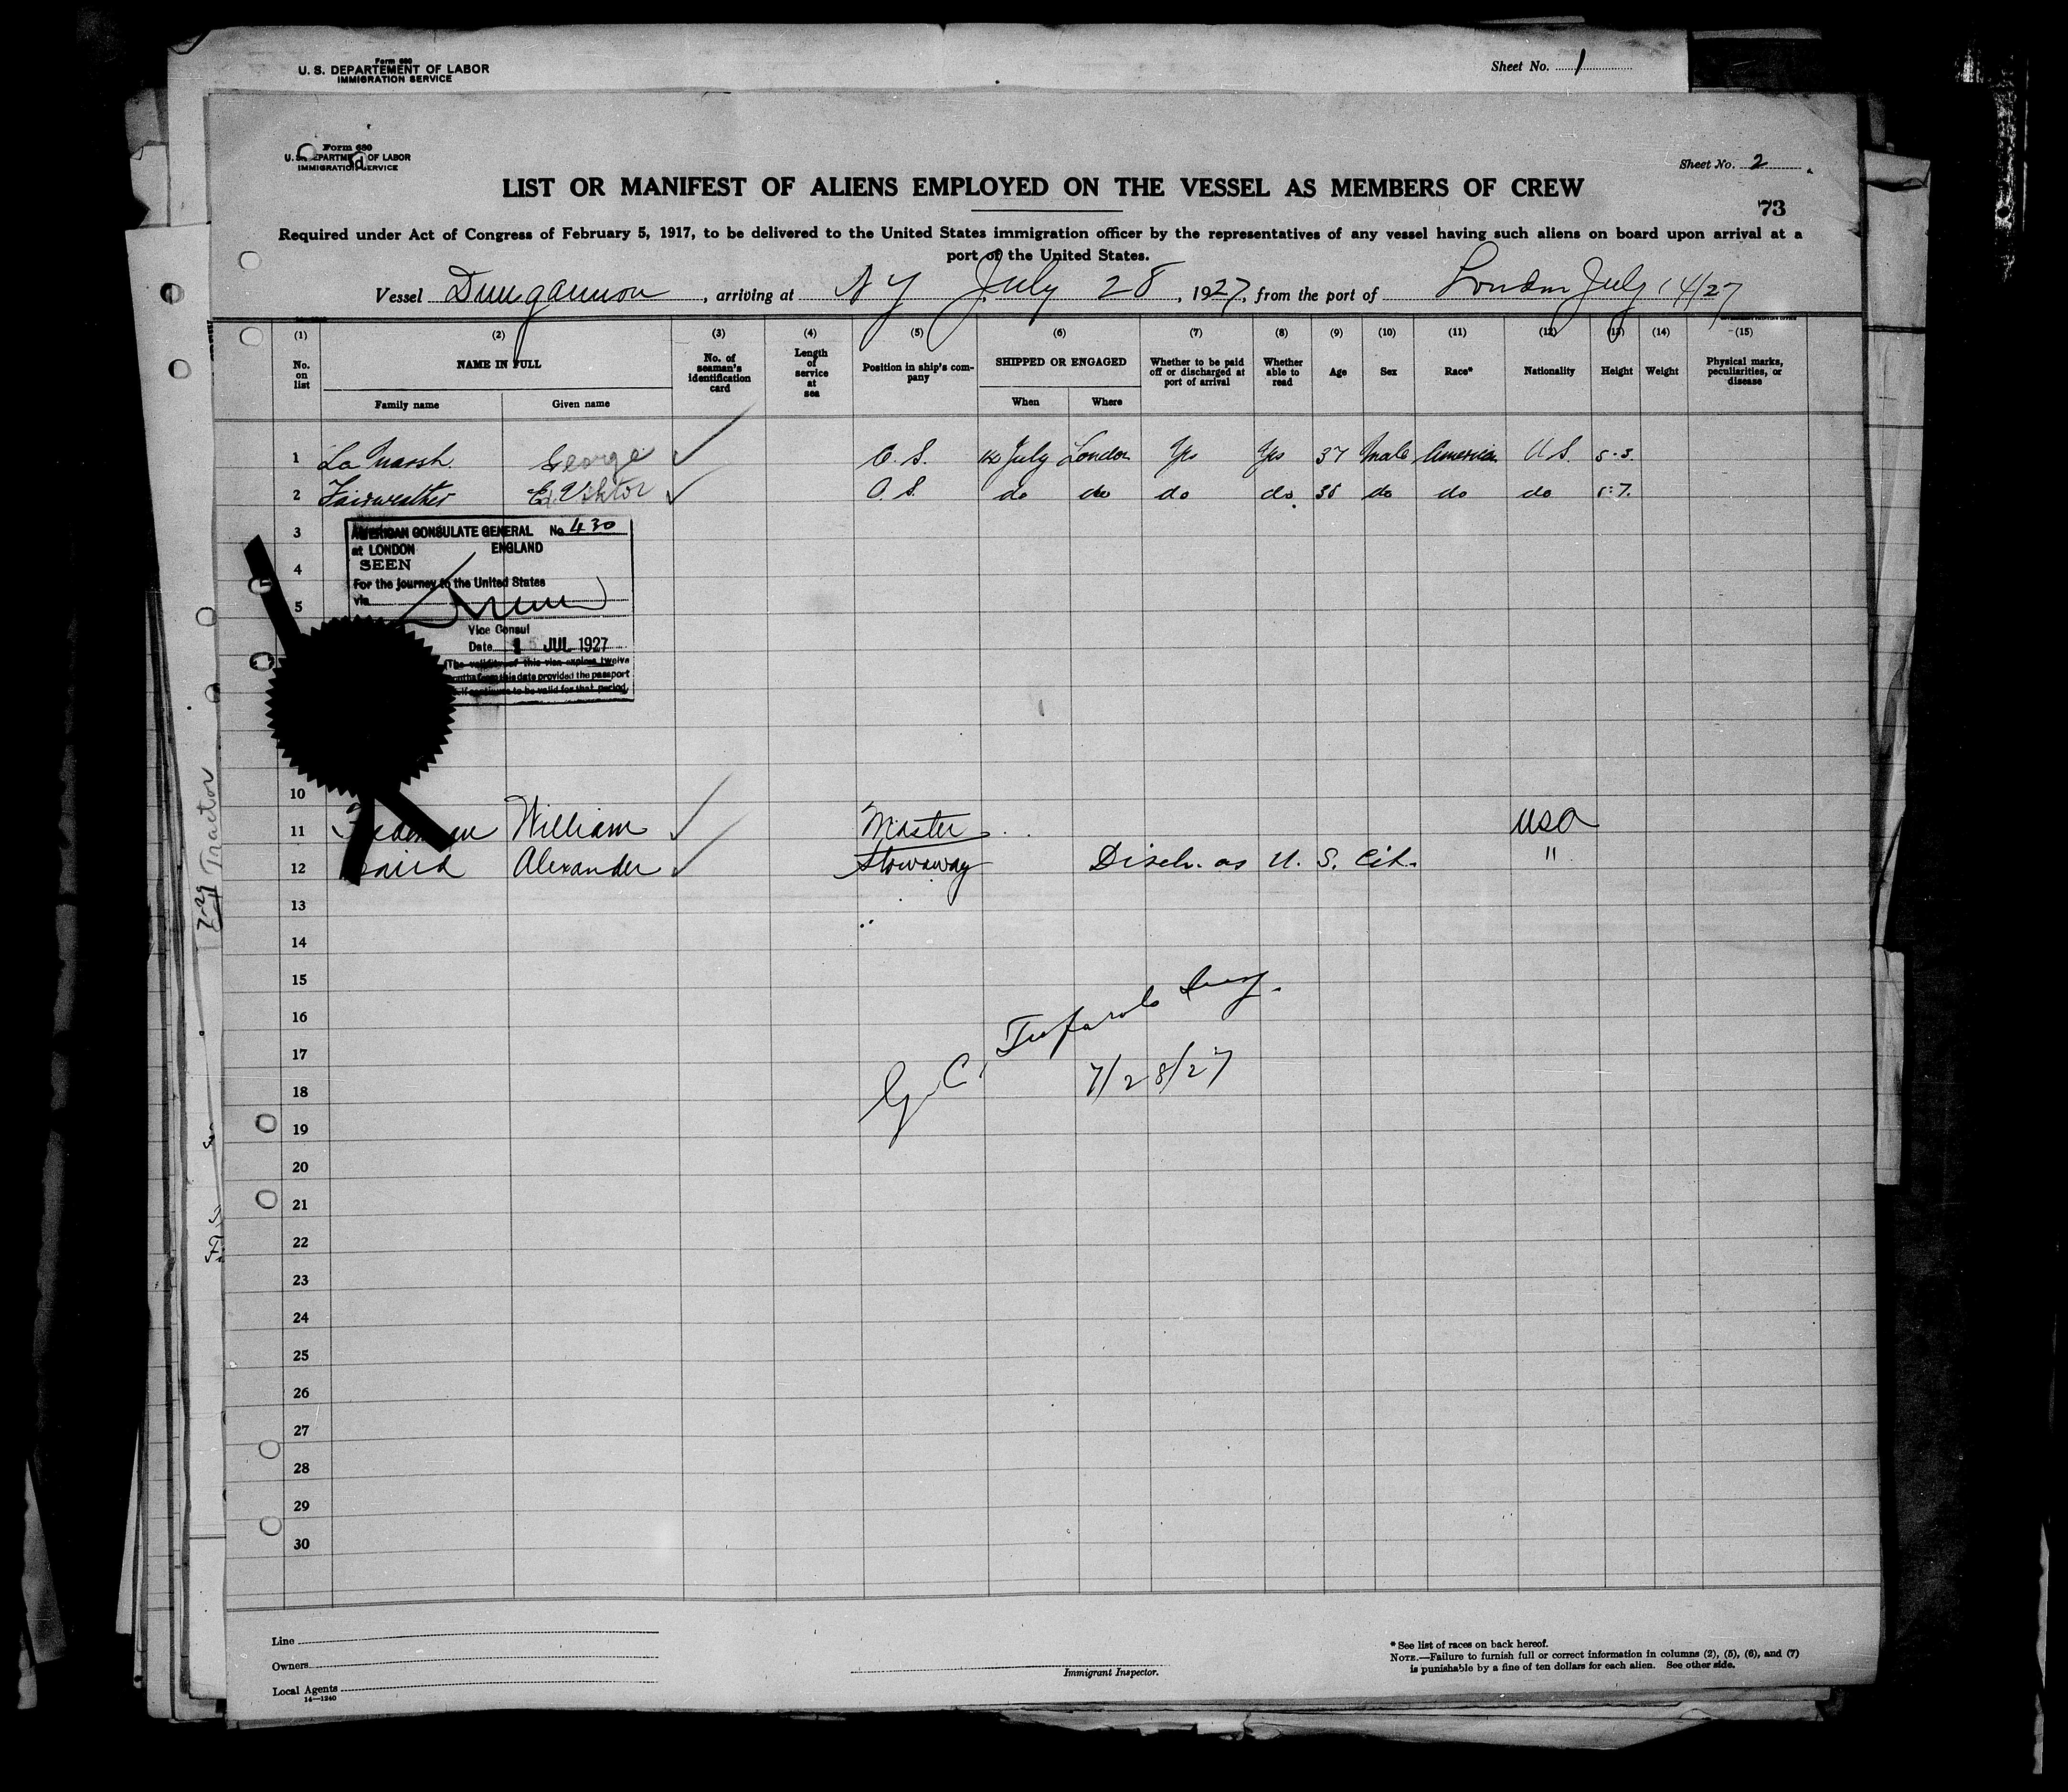 Form 680
U. S. DEPARTEMENT OF LABOR
IMMIGRATION SERVICE
Sheet No. 1
Form 680
U. S. DEPARTMENT OF LABOR
IMMIGRATION SERVICE
Sheet No. 2
LIST OR MANIFEST OF ALIENS EMPLOYED ON THE VESSEL AS MEMBERS OF CREW
73
Required under Act of Congress of February 5, 1917, to be delivered to the United States immigration officer by the representatives of any vessel having such aliens on board upon arrival at a
port of the United States.
Vessel Dungannon, arriving at NY July 28, 1927, from the port of London July 14/27
(1) (2) (3) (4) (5) (6) (7) (8) (9) (10) (11) (12) (13) (14) (15)
No. on list NAME IN FULL No. of seaman's identification card Length of service at sea Position in ship's company SHIPPED OR ENGAGED Whether to be paid off or discharged at port of arrival Whether able to read Age Sex Race* Nationality Height Weight Physical marks, peculiarities, or disease
Family name Given name When Where
1 La Marsh George O. S. 14 July London Yes Yes 37 Male American U S. 5-3.
2 Fairweather Viktor O. S. do do do do 35 do do do 5-7.
3
AMERICAN CONSULATE GENERAL No. 430
at LONDON ENGLAND
SEEN
4
For the journey to the United States
via
5
Vice Consul
Date 15 JUL 1927
(The validity of this visa expires twelve
months from this date provided the passport
itself continues to be valid for that period.
10
11 William Master USA
12 Alexander Stowaway Disch. as U. S. Cit. "
13
14
15
16
17
7/28/27
18
19
20
21
22
23
24
25
26
27
28
29
30
7-29 Tractor
Line
Owners
Local Agents
14—1240
Immigrant Inspector.
* See list of races on back hereof.
NOTE.—Failure to furnish full or correct information in columns (2), (5), (6), and (7)
is punishable by a fine of ten dollars for each alien. See other side.